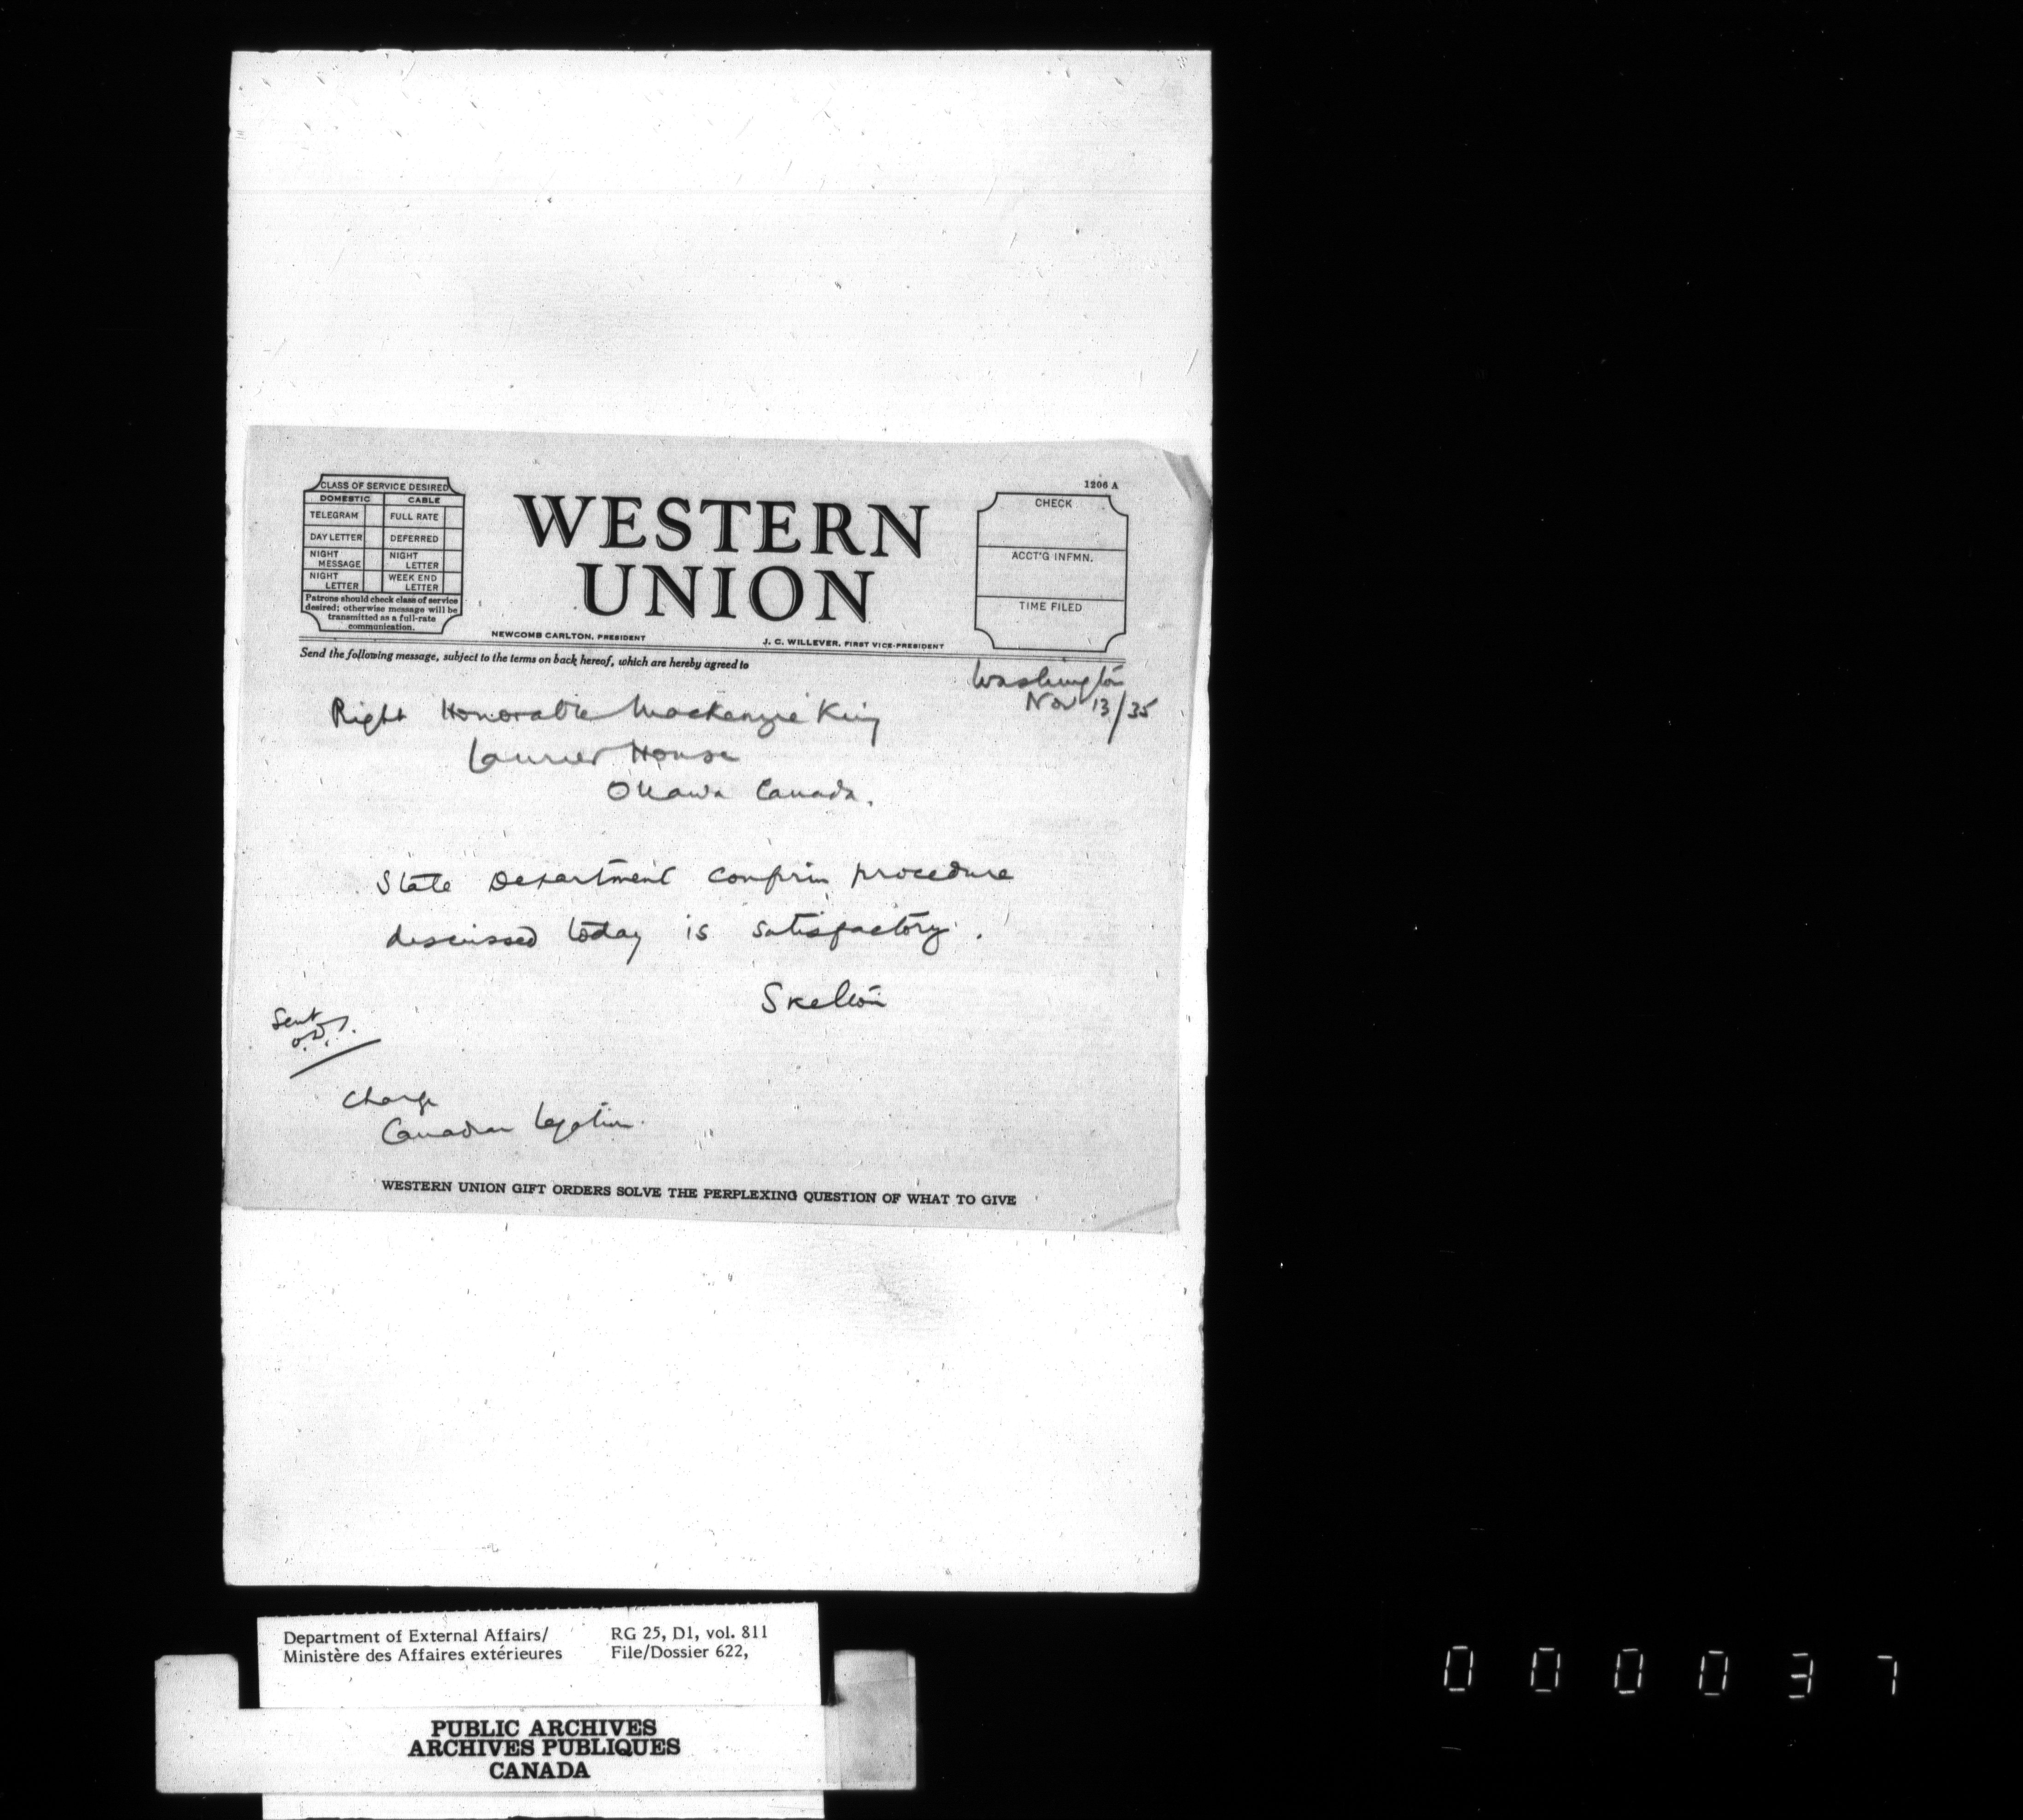 CLASS OF SERVICE DESIRED
DOMESTIC CABLE
TELEGRAM FULL RATE
DAY LETTER DEFERRED
NIGHT MESSAGE NIGHT LETTER
NIGHT LETTER WEEK END LETTER
Patrons should check class of service
desired; otherwise message will be
transmitted as a full-rate
communication.
WESTERN
UNION
1206 A
CHECK
ACCT'G INFMN.
TIME FILED
NEWCOMB CARLTON, PRESIDENT J. C. WILLEVER, FIRST VICE-PRESIDENT
Send the following message, subject to the terms on back hereof, which are hereby agreed to
Washington
Nov 13/35
Right Honorable Mackenzie King
Laurier House
Ottawa Canada.
State Department confirm procedure
discussed today is satisfactory.
Skelton
Sent
O.D.S.
Charge
Canadian Legation.
WESTERN UNION GIFT ORDERS SOLVE THE PERPLEXING QUESTION OF WHAT TO GIVE
Department of External Affairs/ RG 25, D1, vol. 811
Ministère des Affaires extérieures File/Dossier 622,
PUBLIC ARCHIVES
ARCHIVES PUBLIQUES
CANADA
000037